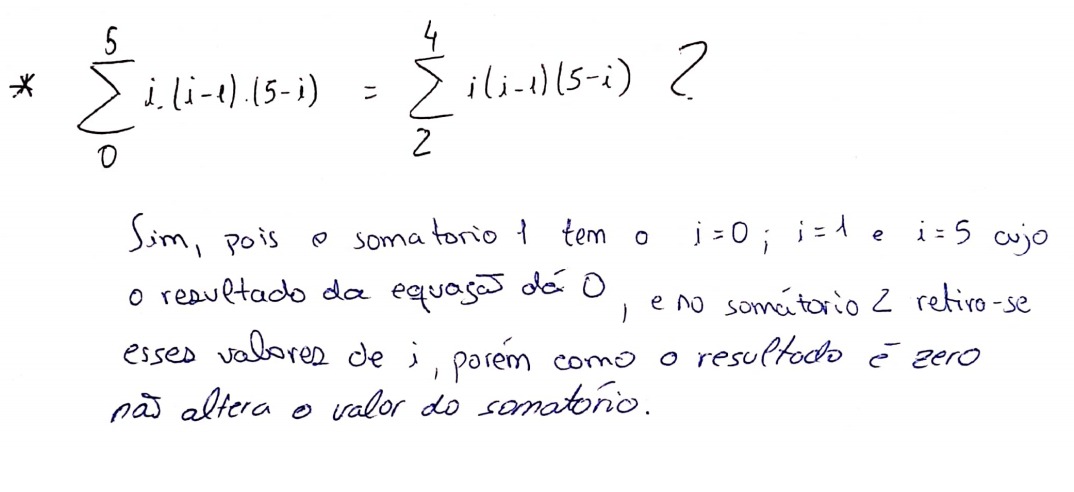 * 5∑0 i.(i-1).(5-i) = 4∑2 i(i-1)(5-i) ?
Sim, pois o somatorio 1 tem o i=0; i=1 e i=5 cujo
o resultado da equação dá 0, e no somátorio 2 retira-se
esses valores de i, porém como o resultado é zero
não altera o valor do somatório.